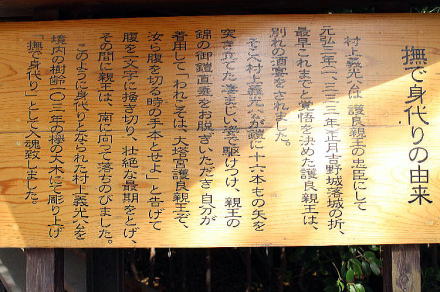 撫で身代りの由来
村上義光公は護良親王の忠臣にして
元弘三年(一三三三年)正月吉野城落城の折、
最早これまでと覚悟を決めた護良親王は、
別れの酒宴をされました。
そこへ村上義光公が鎧に十六本もの矢を
突き立てた凄まじい姿で駆けつけ、親王の
錦の御鎧直垂をお脱ぎいただき自分が
着用して「われこそは、大塔宮護良親王ぞ、
汝ら腹を切る時の手本とせよ」と告げて
腹を一文字に掻き切り、壮絶な最期をとげ、
その間に親王は、南に向って落ちのびました。
このように身代りとなられた村上義光公を
境内の樹齢一〇三年の欅の大木にて彫り上げ
「撫で身代り」として入魂致しました。